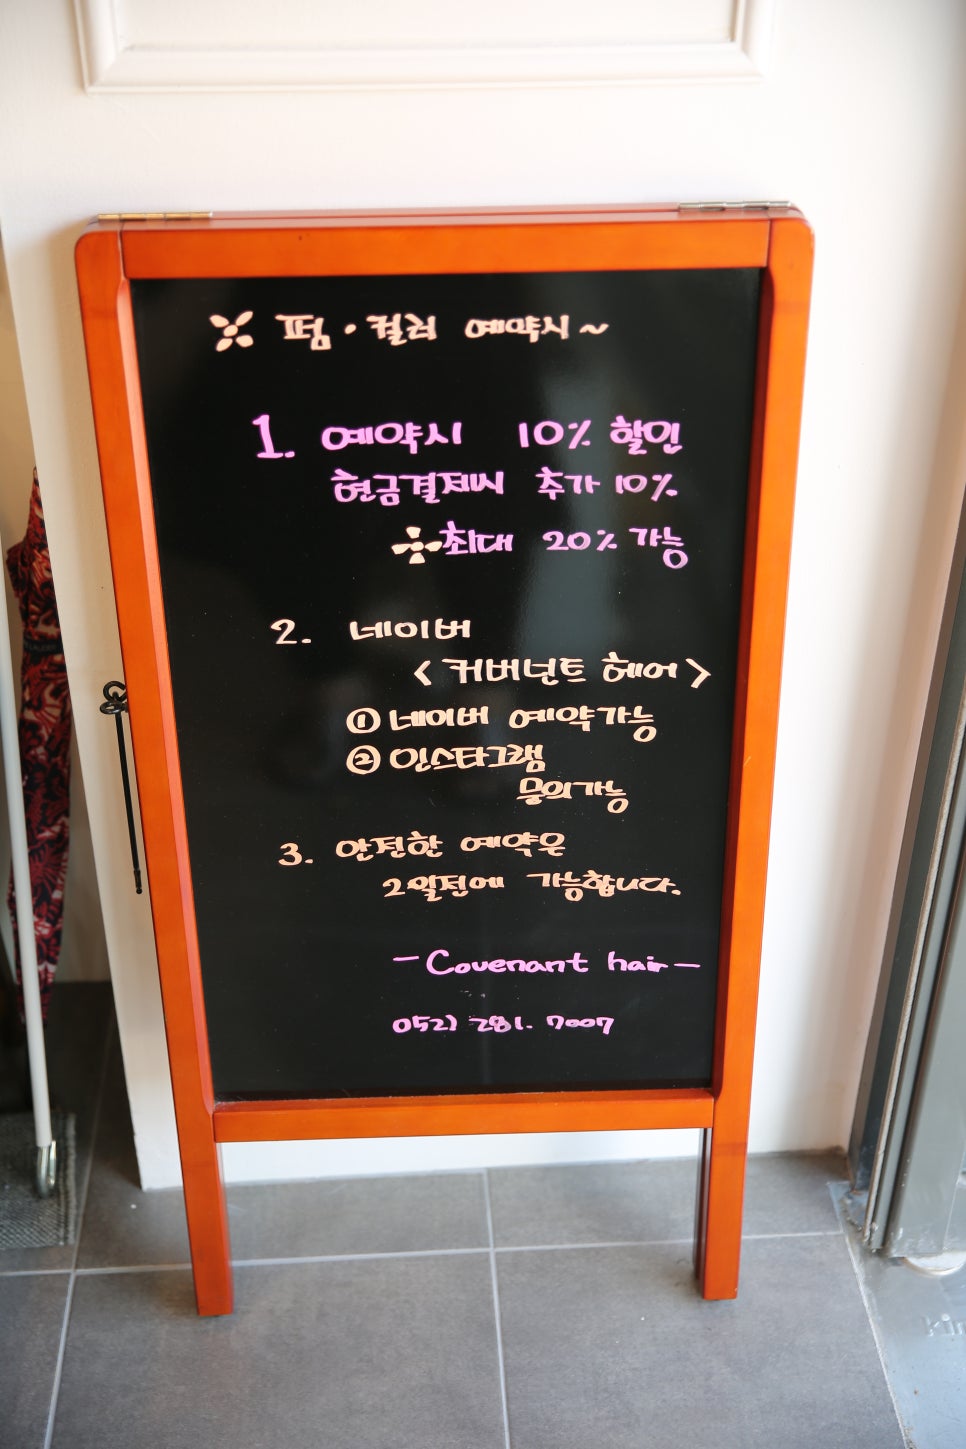 ※ 펌 · 컬러 예약시 ~
1. 예약시 10% 할인
현금결제시 추가 10%
※최대 20% 가능
2. 네이버
<커버넌트 헤어>
① 네이버 예약가능
② 인스타그램
문의가능
3. 안전한 예약은
2일전에 가능합니다.
- Covenant hair -
052) 281. 7007